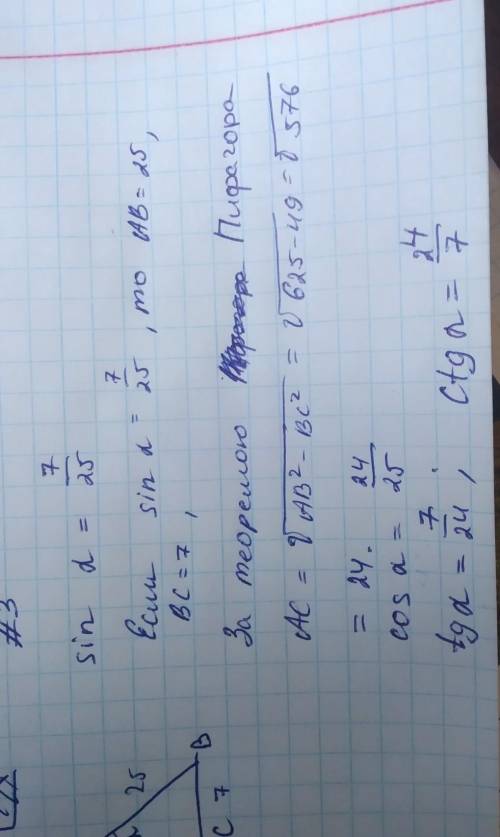 #3
sin α = 7/25
Если sin α = 7/25, то AB = 25,
BC = 7,
За теоремою Пифагора
AC = √AB² - BC² = √625 - 49 = √576
= 24.
cos α = 24/25
tg α = 7/24, ctg α = 24/7
25
B
C 7